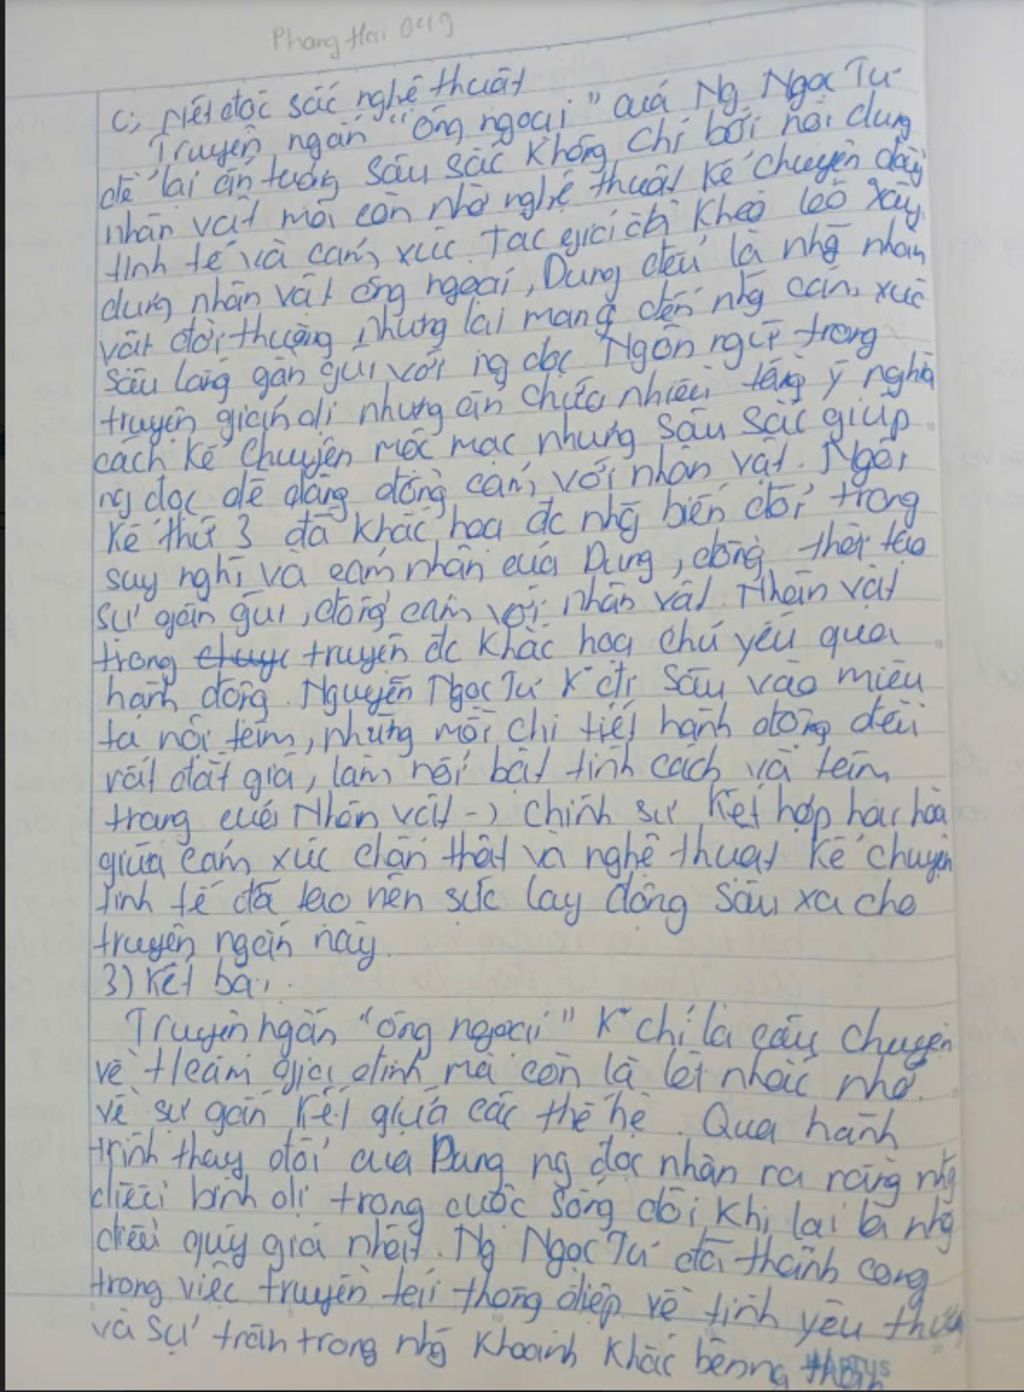 Phong Hai 0419
c, Nét đặc sắc nghệ thuật
Truyện ngắn "ông ngoại" của Ng Ngọc Tư
để lại ấn tượng sâu sắc không chỉ bởi nội dung
nhân vật mà còn nhờ nghệ thuật kể chuyện đầy
tinh tế và cảm xúc. Tác giả đã khéo léo xây
dựng nhân vật ông ngoại, Dung đều là nhg nhân
vật đời thường, nhưng lại mang đến nhg cảm xúc
sâu lắng gần gũi với ng đọc Ngôn ngữ trong
truyện giản dị nhưng ẩn chứa nhiều tầng ý nghĩa
cách kể chuyện mộc mạc nhưng sâu sắc giúp
ng đọc dễ dàng đồng cảm với nhân vật. Ngôi
kể thứ 3 đã khắc hoạ đc nhg biến đổi trong
suy nghĩ và cảm nhận của Dung, đồng thời tạo
sự gần gũi, đồng cảm với nhân vật. Nhân vật
trong truyện đc khắc hoạ chủ yếu qua
hành động. Nguyễn Ngọc Tư K đi sâu vào miêu
tả nội tâm, nhưng mỗi chi tiết hành động đều
rất đắt giá, làm nổi bật tính cách và tâm
trạng của nhân vật -) Chính sự kết hợp hài hòa
giữa cảm xúc chân thật và nghệ thuật kể chuyện
tinh tế đã tạo nên sức lay động sâu xa cho
truyện ngắn này.
3) Kết bài.
Truyện ngắn "ông ngoại" K chỉ là câu chuyện
về t/cảm gia đình mà còn là lời nhắc nhở
về sự gắn kết giữa các thế hệ. Qua hành
trình thay đổi của Dung ng đọc nhận ra rằng nhg
điều bình dị trong cuộc sống đôi khi lại là nhg
điều quý giá nhất. Ng Ngọc Tư đã thành công
trong việc truyền tải thông điệp về tình yêu thương
và sự trân trọng nhg khoảnh khắc bên